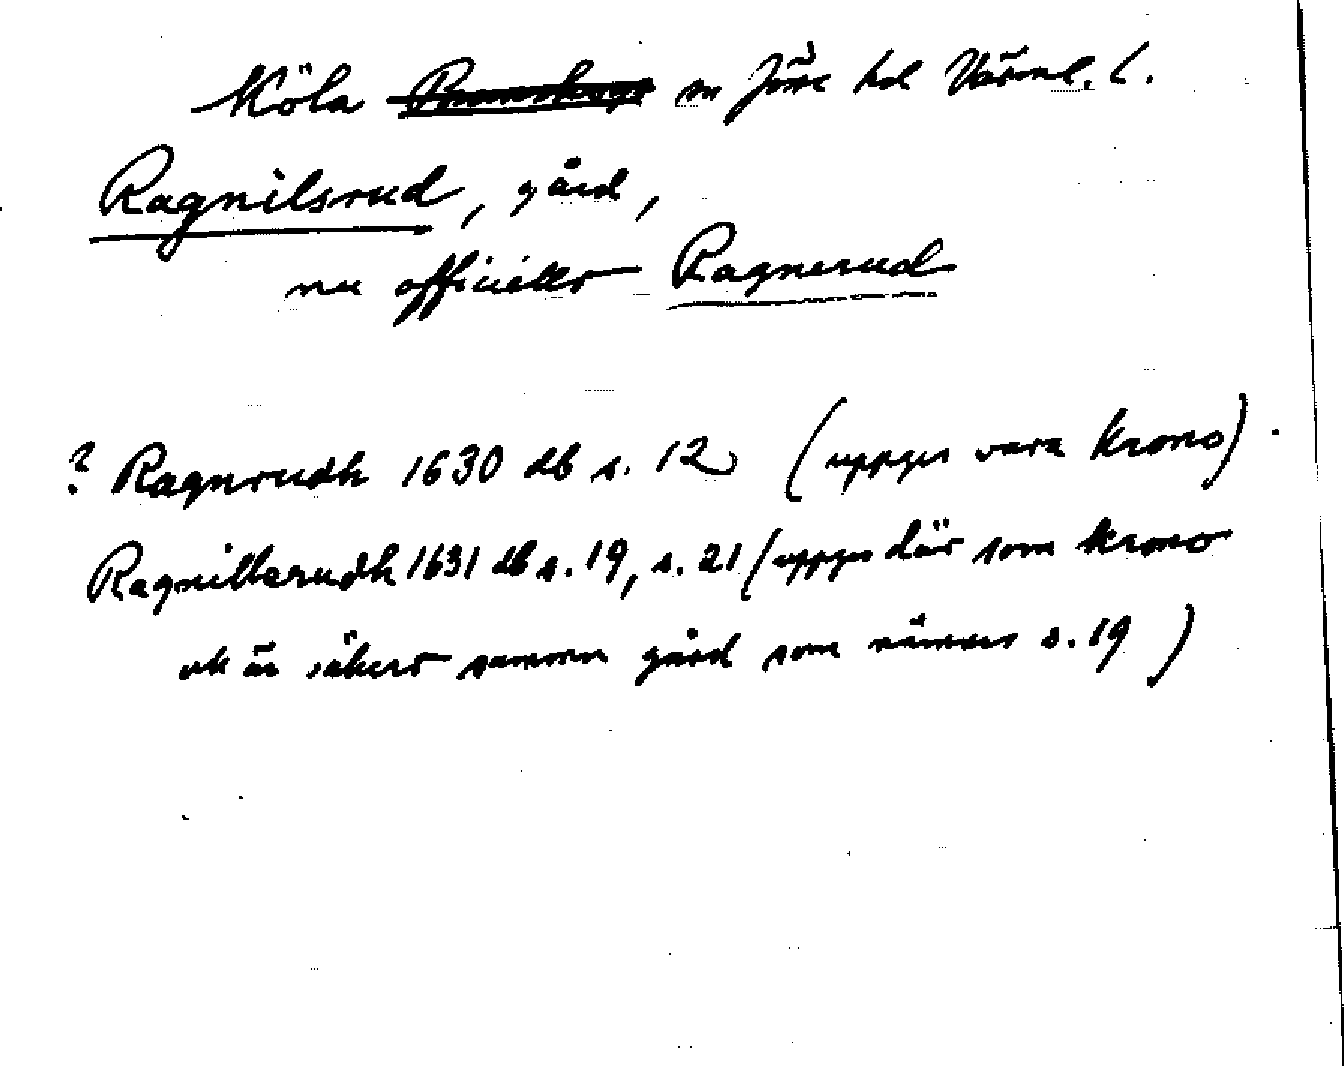 Köla sn Jösse hd Värml. l.
Ragnilsrud, gård,
nu officiellt Ragnerud
? Ragnrudh 1630 db s. 12 (uppges vara krono).
Ragnillerudh 1631 db s. 19, s. 21 (uppges där som krono
ok är säkert samma gård som nämnes s. 19)